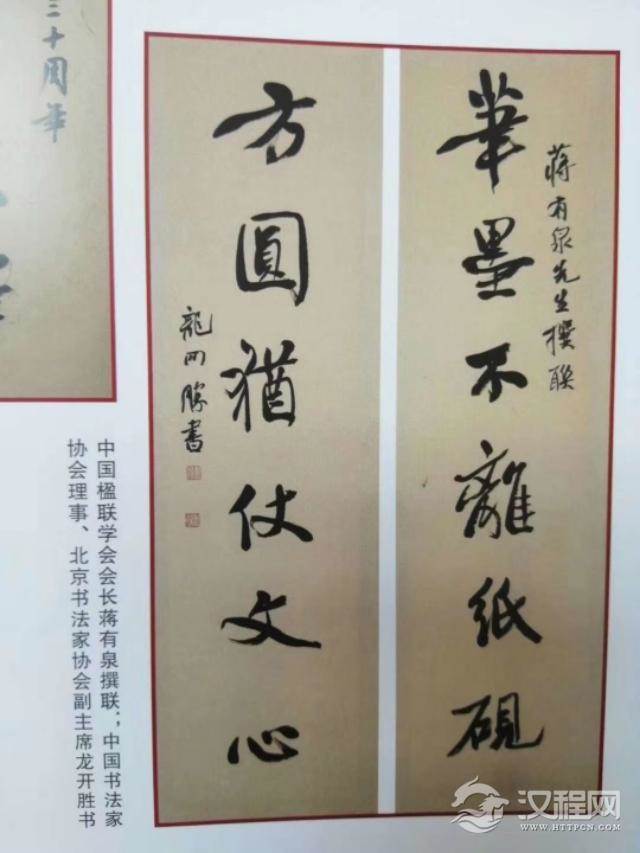 蒋有泉先生撰联
筆墨不離紙硯
方圓猶仗文心
龍開勝書
三十周年
中国楹联学会会长蒋有泉撰联；中国书法家
协会理事、北京书法家协会副主席龙开胜书
汉程网
HTTPCN.COM